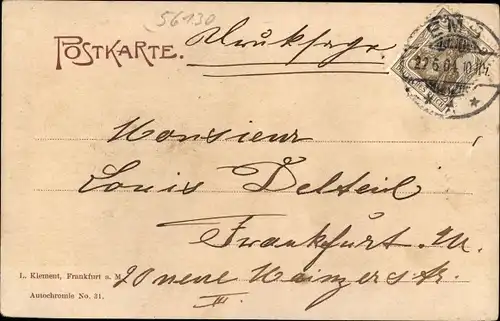 56130
POSTKARTE. Drucksache
EMS
22.5.04. 10-11V.
Monsieur
Louis Delteil
Frankfurt. M.
20 neue Mainzerstr.
III.
L. Klement, Frankfurt a. M
Autochromie No. 31.